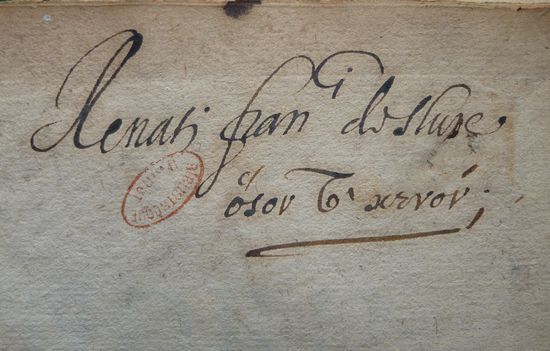 Renati franci de Sluse
ὅσον τὸ κενόν;